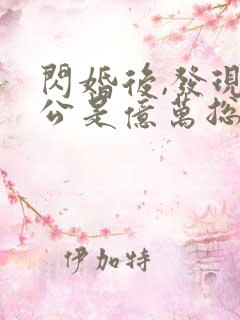 閃婚後,發現
公是億萬總
伊加特